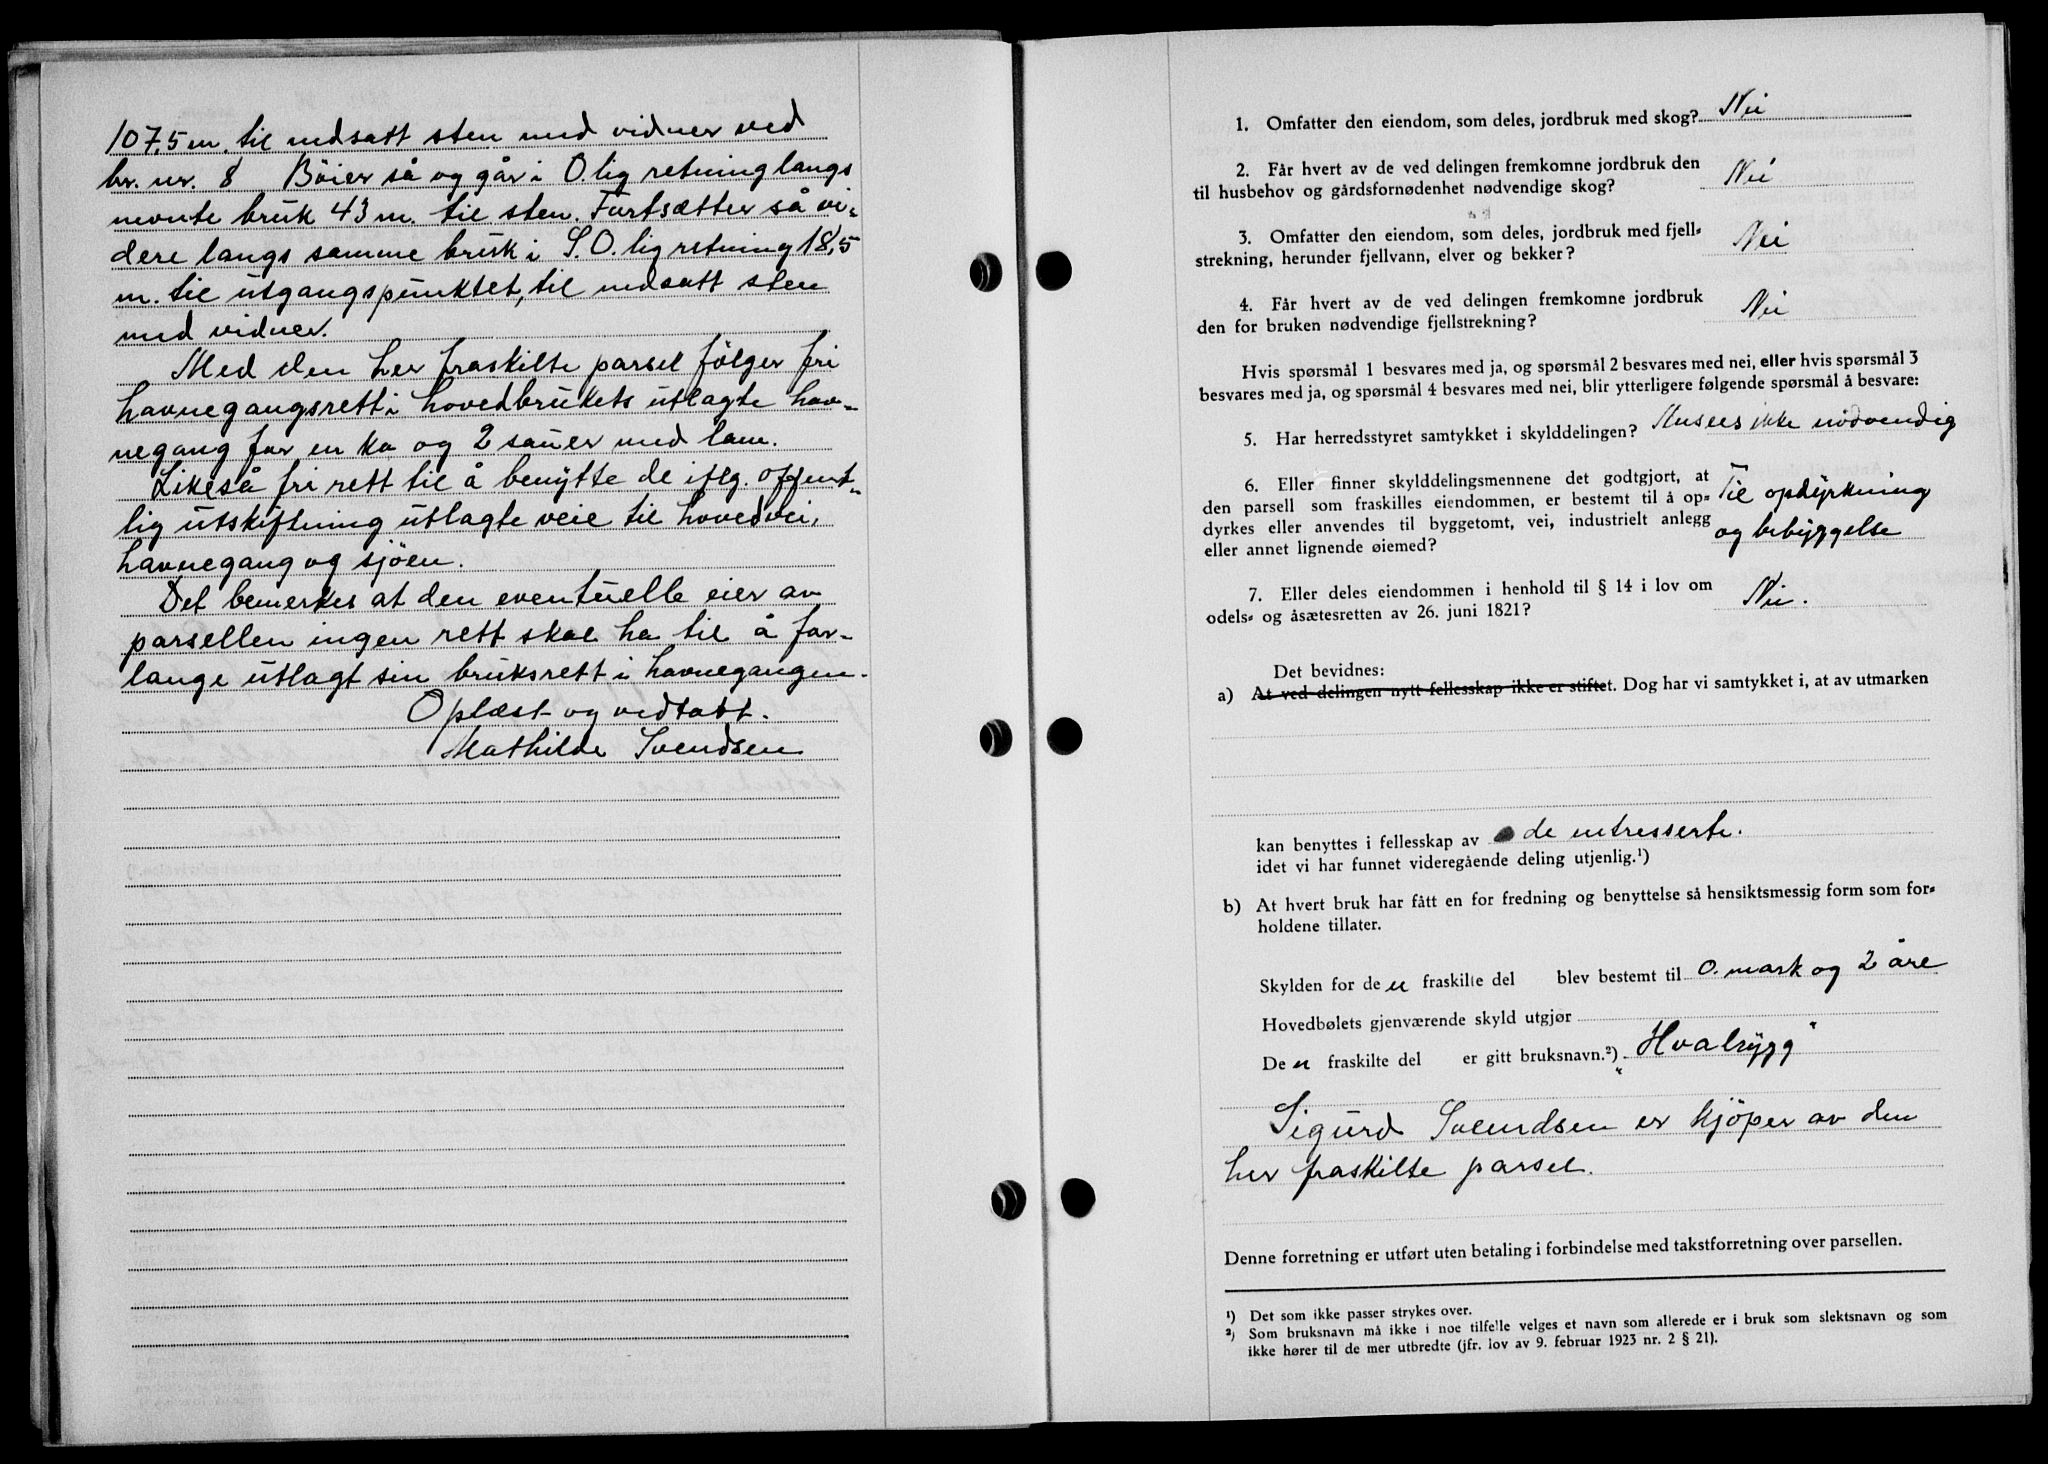 107,5 m. til nedsatt sten med vidner ved
br. nr. 8 Böier så og går i O.lig retning langs
nevnte bruk 43 m. til sten. Fortsætter så vi-
dere langs samme bruk i S.O.lig retning 18,5
m. til utgangspunktet, til nedsatt sten
med vidner.
Med den her fraskilte parsel følger fri
havnegangsrett i hovedbrukets utlagte hav-
negang for en ku og 2 sauer med lam.
Likeså fri rett til å benytte de iflg. offent-
lig utskiftning utlagte veie til hovedvei,
havnegang og sjöen.
Det bemerkes at den eventuelle eier av
parsellen ingen rett skal ha til å for-
lange utlagt sin bruksrett i havnegangen.
Oplæst og vedtatt.
Mathilde Svendsen
1. Omfatter den eiendom, som deles, jordbruk med skog? Nei
2. Får hvert av de ved delingen fremkomne jordbruk den
til husbehov og gårdsfornødenhet nødvendige skog? Nei
3. Omfatter den eiendom, som deles, jordbruk med fjell-
strekning, herunder fjellvann, elver og bekker? Nei
4. Får hvert av de ved delingen fremkomne jordbruk
den for bruken nødvendige fjellstrekning? Nei
Hvis spørsmål 1 besvares med ja, og spørsmål 2 besvares med nei, eller hvis spørsmål 3
besvares med ja, og spørsmål 4 besvares med nei, blir ytterligere følgende spørsmål å besvare:
5. Har herredsstyret samtykket i skylddelingen? Ansees ikke nödvendig
6. Eller finner skylddelingsmennene det godtgjort, at
den parsell som fraskilles eiendommen, er bestemt til å op-
dyrkes eller anvendes til byggetomt, vei, industrielt anlegg
eller annet lignende øiemed?
Til opdyrkning
og bebyggelse
7. Eller deles eiendommen i henhold til § 14 i lov om
odels- og åsætesretten av 26. juni 1821? Nei.
Det bevidnes:
a) At ved delingen nytt fellesskap ikke er stiftet. Dog har vi samtykket i, at av utmarken
kan benyttes i fellesskap av de intresserte.
idet vi har funnet videregående deling utjenlig.¹)
b) At hvert bruk har fått en for fredning og benyttelse så hensiktsmessig form som for-
holdene tillater.
Skylden for den fraskilte del blev bestemt til 0. mark og 2 öre
Hovedbølets gjenværende skyld utgjør
Den fraskilte del er gitt bruksnavn.²) „Hvalrygg"
Sigurd Svendsen er kjöper av den
her fraskilte parsel.
Denne forretning er utført uten betaling i forbindelse med takstforretning over parsellen.
¹) Det som ikke passer strykes over.
²) Som bruksnavn må ikke i noe tilfelle velges et navn som allerede er i bruk som slektsnavn og som
ikke hører til de mer utbredte (jfr. lov av 9. februar 1923 nr. 2 § 21).